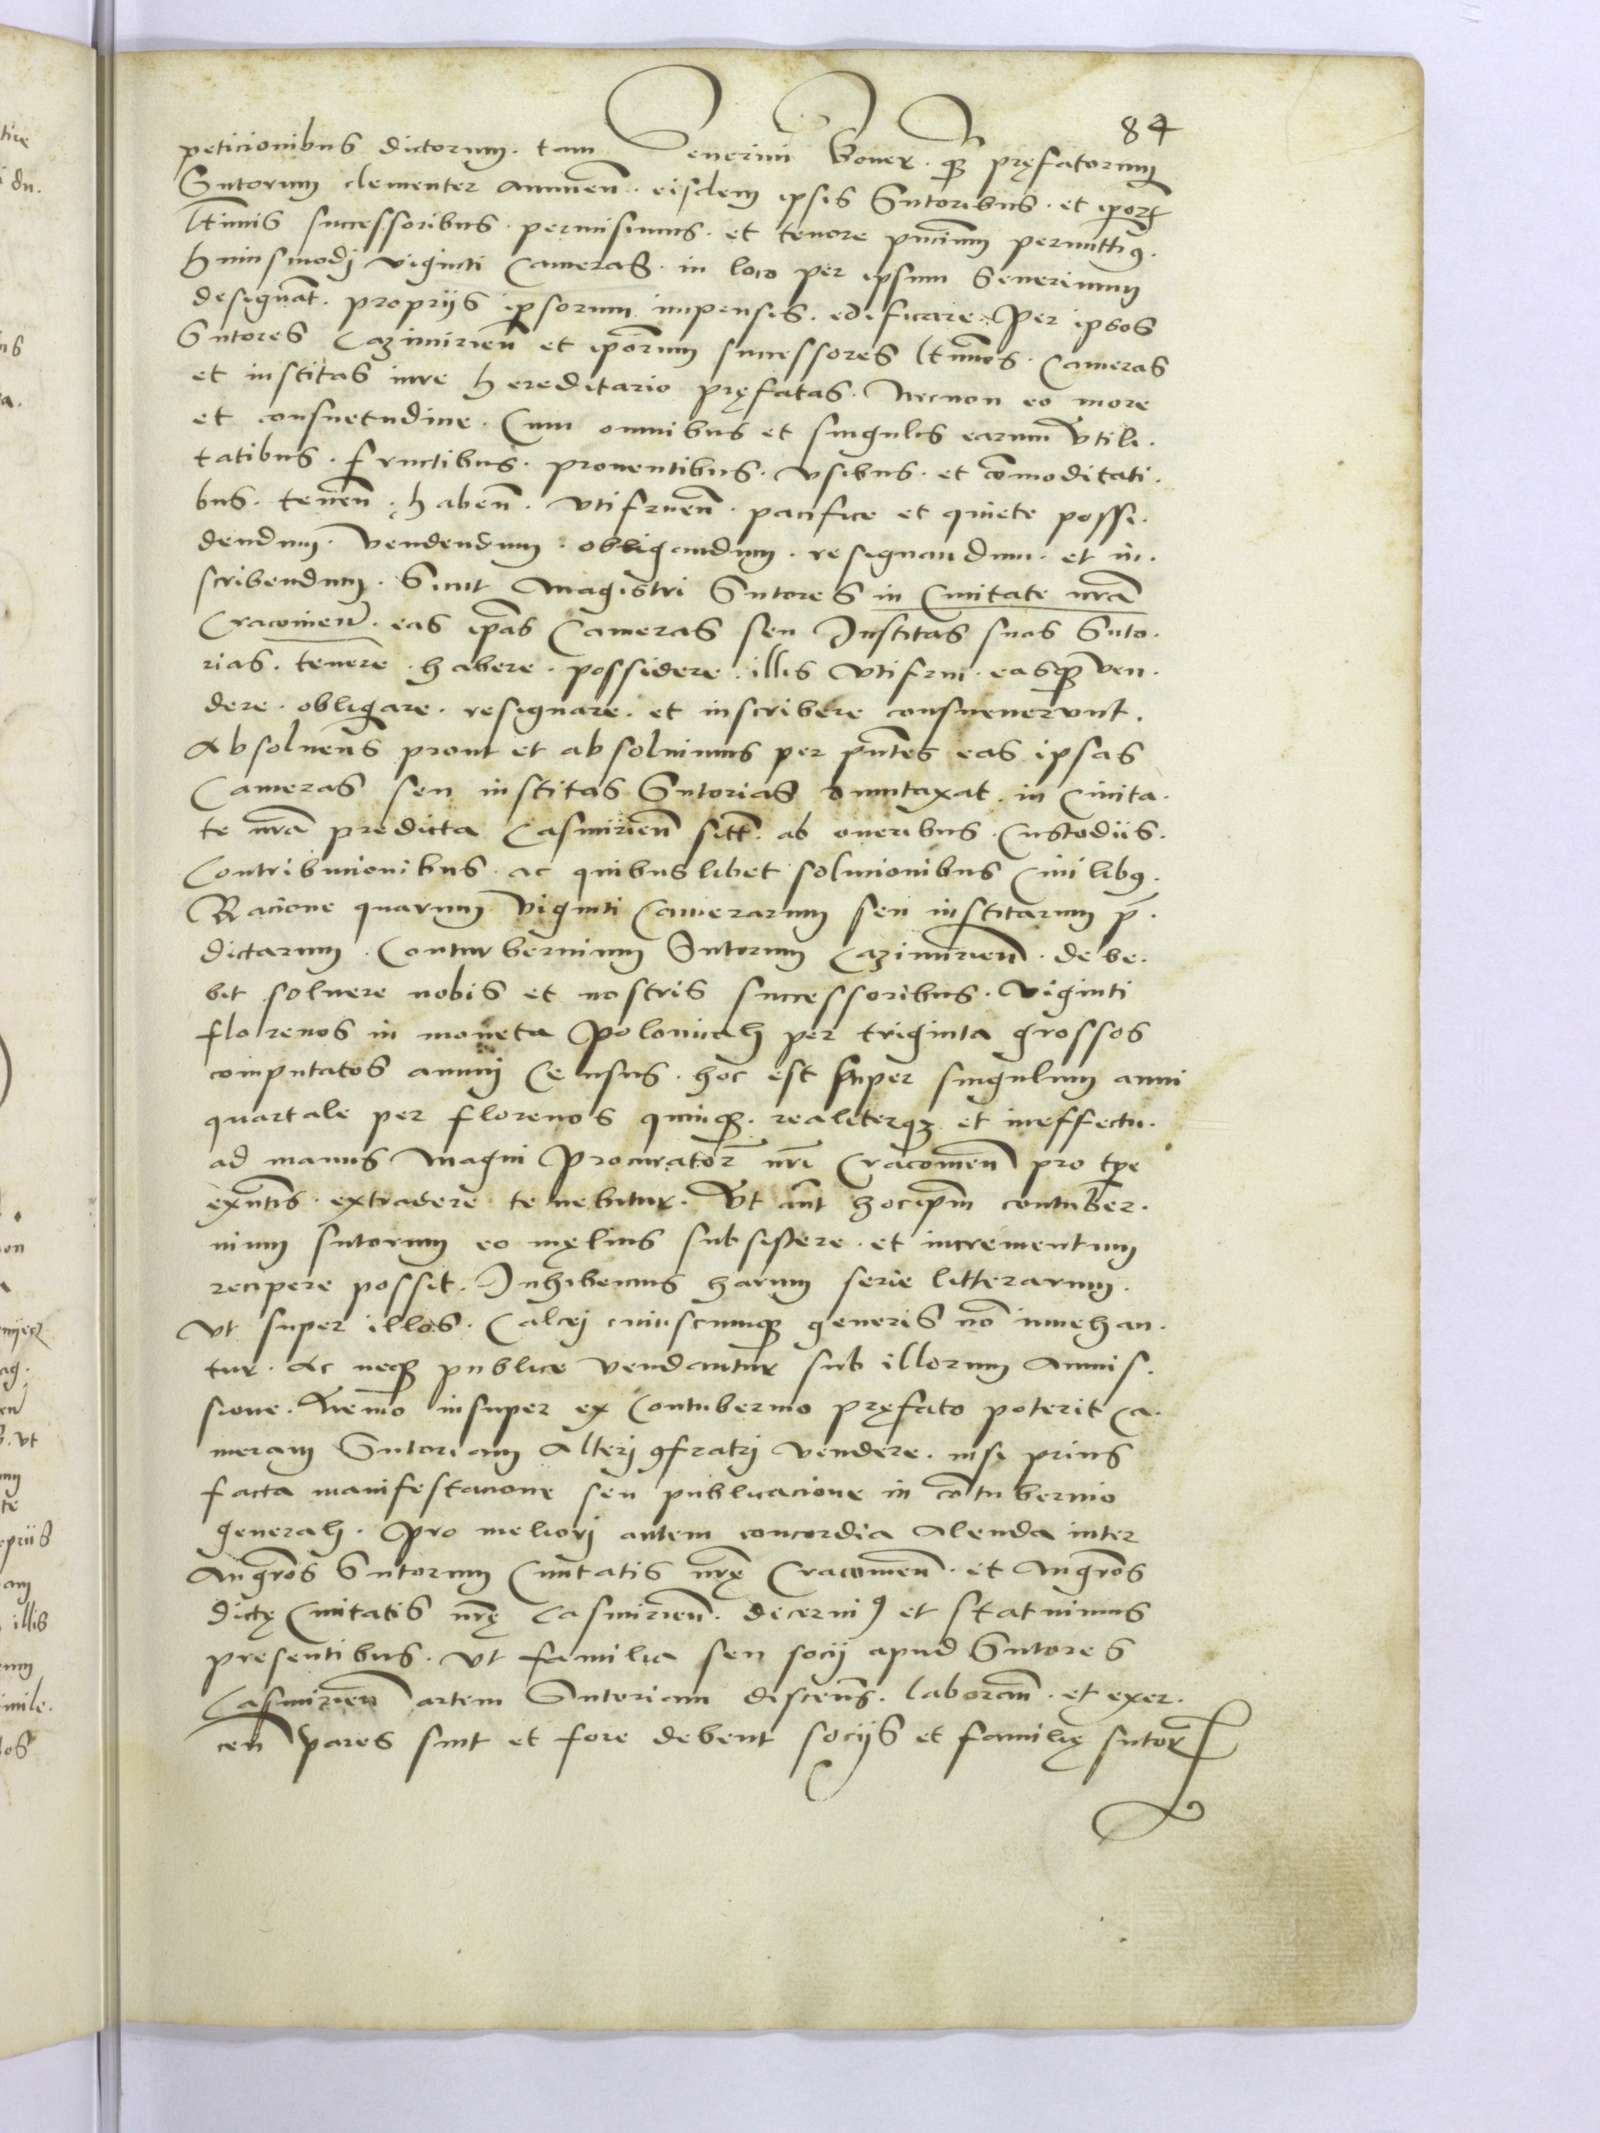 84
peticionibus dictorum. tam Seuerini Boner. qȝ pręfatorum
Sutorum clementer annuen̄. eisdem ipsis Sutoribus. et ip̄orꝝ
lt̄imis successoribus. permisimus. et tenore pn̄cium permittimꝰ.
huiusmodj viginti Cameras. in loco per ipsum Seuerinum
designat̄. proprijs ipsorum impensis. edificare. Per ipsos
Sutores Cazimirien̄ et ip̄orum successores lt̄imos. Cameras
et institas iure hereditario pręfatas. Necnon eo more
et consuetudine. Cum omnibus et singulis earum vtili.
tatibus. fructibus. prouentibus. vsibus. et com̄oditati.
bus. tenen̄. haben̄. vtifruen̄. pacifice et quiete possi.
dendum. vendendum. obligandum. resignandum. et in.
scribendum. Sicut Magistri Sutores in Ciuitate nr̄a
Cracouien̄. eas ip̄as Cameras seu Institas suas Suto.
rias. tenere. habere. possidere. illis vtifrui. easqȝ ven.
dere. obligare. resignare. et inscribere consueuerunt.
Absoluen̄s prout et absoluimus per pn̄tes eas ipsas
Cameras seu institas Sutorias duntaxat. in Ciuita.
te nr̄a predicta Casmirien̄ sitt̄. ab oneribus. Custodiis.
Contribucionibus. ac quibuslibet solucionibus Ciuilibꝰ.
Racione quarum viginti Camerarum seu institarum p̄.
dictarum. Contubernium Sutorum Cazimirien̄. debe.
bit soluere nobis et nostris successoribus. Viginti
florenos in moneta Polonicali per triginta grossos
computatos annuj Census. hoc est super singulum anni
quartale per florenos quinqȝ. realiterqȝ et ineffectu.
ad manus Magni Procurator̄ nr̄i Cracouien̄ pro tp̄e
exn̄tis. extradere tenebitur. Vt aut̄ hocip̄m contuber.
nium sutorum eo męlius subsistere. et incrementum
recipere possit. Inhibemus harum serie litterarum.
vt super illos. Calcej cuiuscunqȝ generis no͞ inuehan.
tur. Ac neqȝ publice vendantur sub illorum Amis.
sione. Nemo insuper ex Contubernio pręfato poterit Ca.
meram Sutoriam Alterj ꝯfratrj vendere. nisi prius
facta manifestacione seu publicacione in co͞tubernio
generali. Pro meliorj autem concordia alenda inter
Mag̅ros Sutorum Ciuitatis nr̄ę Cracouien̄. et Mag̅ros
dictę Ciuitatis nr̄ę Casmirien̄. decernimꝰ et statuimus
presentibus. vt familia seu socij apud Sutores
Casmirien̄ artem Sutoriam discen̄s. laboran̄. et exer.
cen̄ pares sint et fore debent socijs et familię sutorꝝ